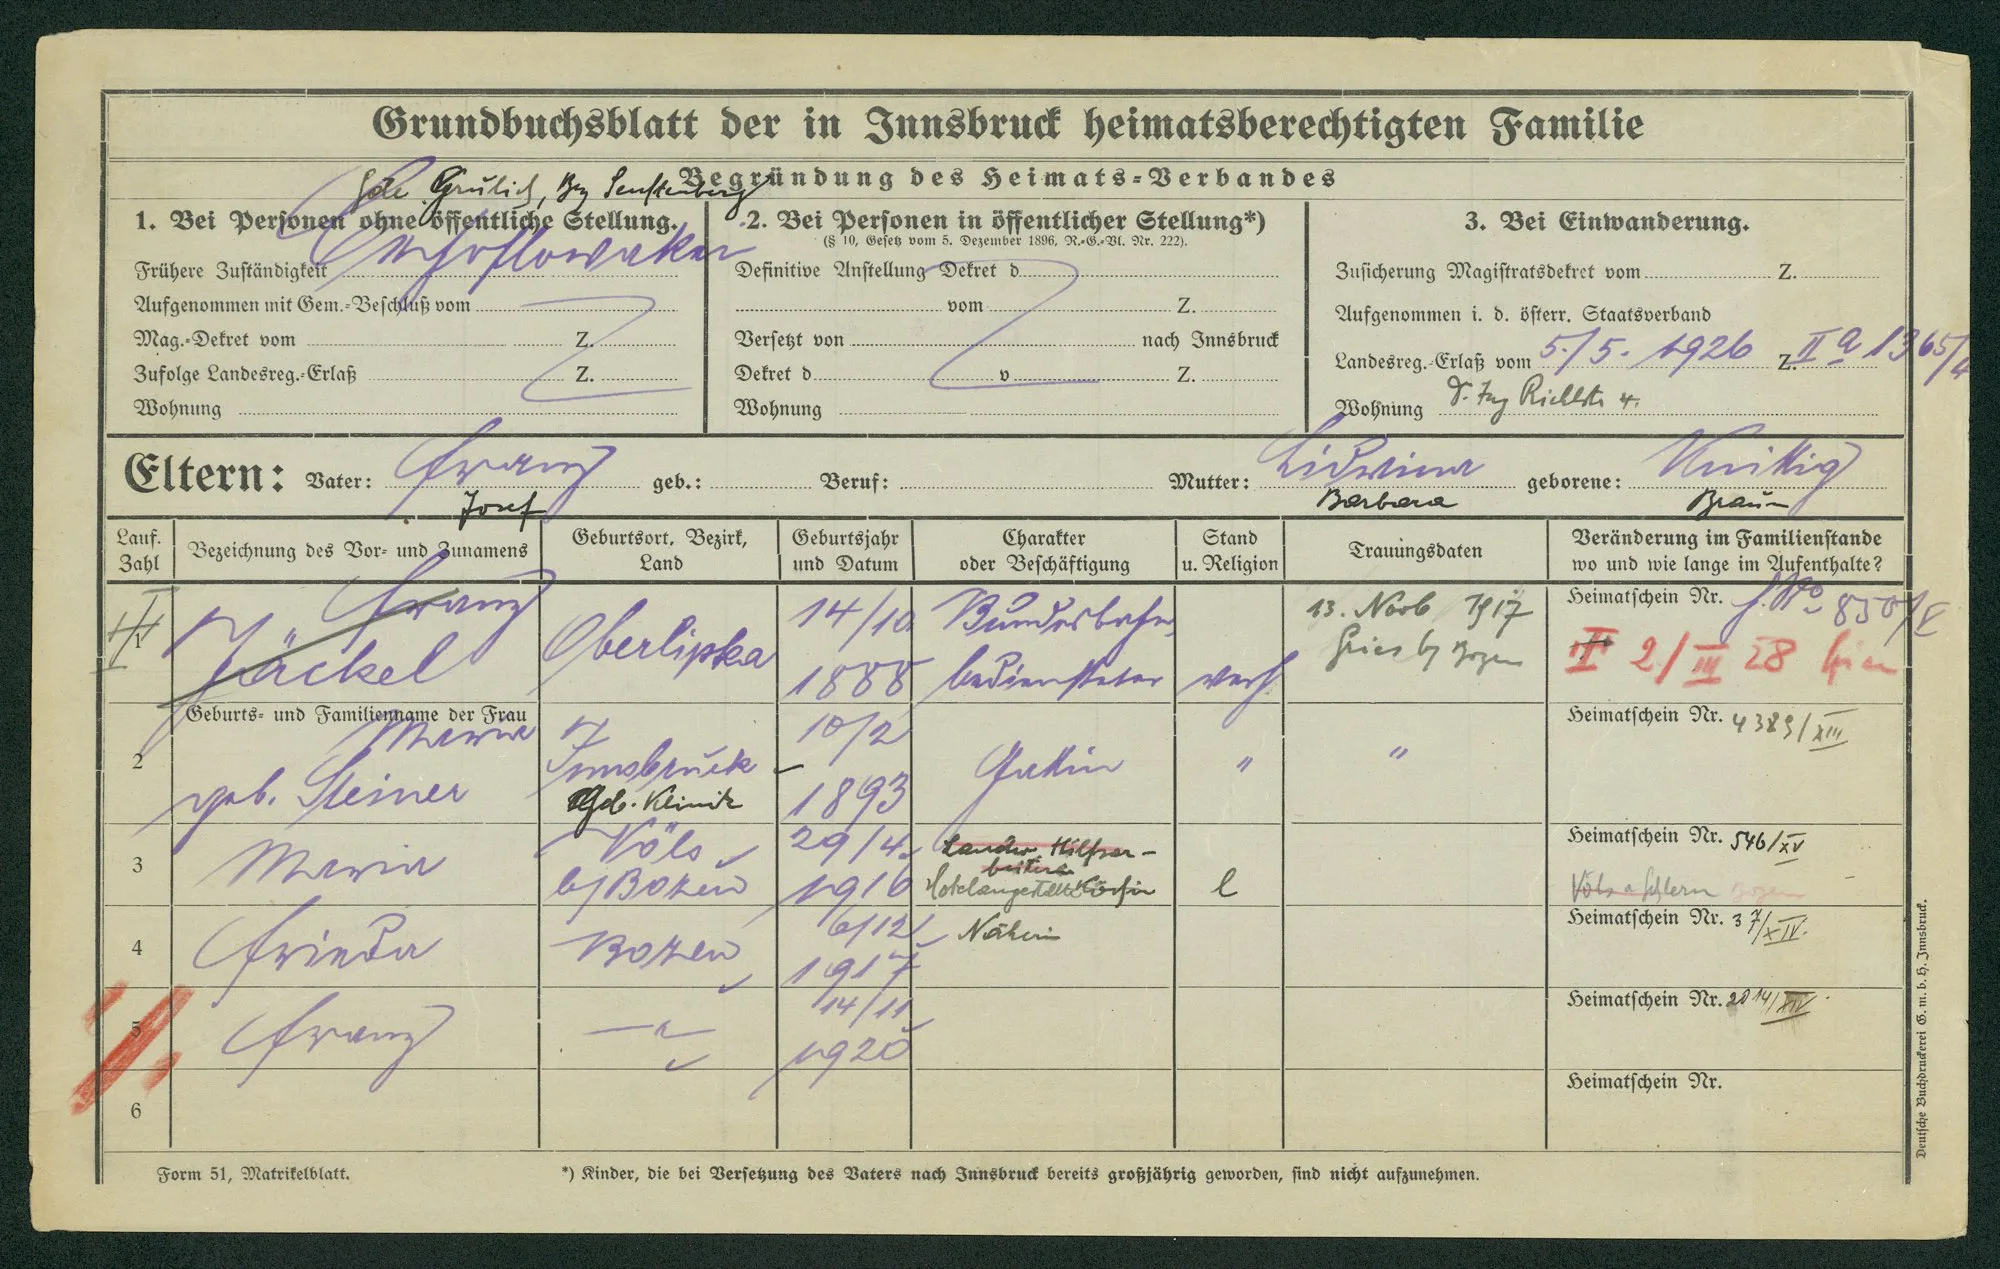 Grundbuchsblatt der in Innsbruck heimatsberechtigten Familie
Begründung des Heimats-Verbandes
Grulich, Bez Senftenberg
1. Bei Personen ohne öffentliche Stellung.
Frühere Zuständigkeit
Aufgenommen mit Gem.-Beschluß vom
Mag.-Dekret vom Z.
Zufolge Landesreg.-Erlaß Z.
Wohnung
2. Bei Personen in öffentlicher Stellung*)
(§ 10, Gesetz vom 5. Dezember 1896, R.-G.-Bl. Nr. 222).
Definitive Anstellung Dekret d
vom Z.
Versetzt von nach Innsbruck
Dekret d v Z.
Wohnung
3. Bei Einwanderung.
Zusicherung Magistratsdekret vom Z.
Aufgenommen i. d. österr. Staatsverband
Landesreg.-Erlaß vom 5./5. 1926 Z. II a 1365/4
Wohnung
Eltern: Vater: Franz geb.: Beruf: Mutter: Lidwina geborene:
Josef Barbara Braun
Lauf. Zahl
Bezeichnung des Vor- und Zunamens
Geburtsort, Bezirk, Land
Geburtsjahr und Datum
Charakter oder Beschäftigung
Stand u. Religion
Trauungsdaten
Veränderung im Familienstande wo und wie lange im Aufenthalte?
1
Franz
Jäckel
Oberlipka
14/10
1888
Bundesbahn
bediensteter
verh.
13. Novb 1917
Gries b/ Bozen
Heimatschein Nr. 850/V
2/III 28
Geburts- und Familienname der Frau
2
Maria
geb. Steiner
Innsbruck
Geb. Klinik
10/2
1893
Gattin
"
"
Heimatschein Nr. 4389/XIII
3
Maria
Völs
b/Bozen
29/4.
1916
Landw. Hilfsar-
beiterin
Hotelangestellte Köchin
l
Heimatschein Nr. 546/XV
Völs a Schlern Bozen
4
Frieda
Bozen
6/12
1917
Näherin
Heimatschein Nr. 37/XIV.
5
Franz
— " —
14/11
1920
Heimatschein Nr. 2014/XIV
6
Heimatschein Nr.
Form 51, Matrikelblatt.
*) Kinder, die bei Versetzung des Vaters nach Innsbruck bereits großjährig geworden, sind nicht aufzunehmen.
Deutsche Buchdruckerei G. m. b. H. Innsbruck.